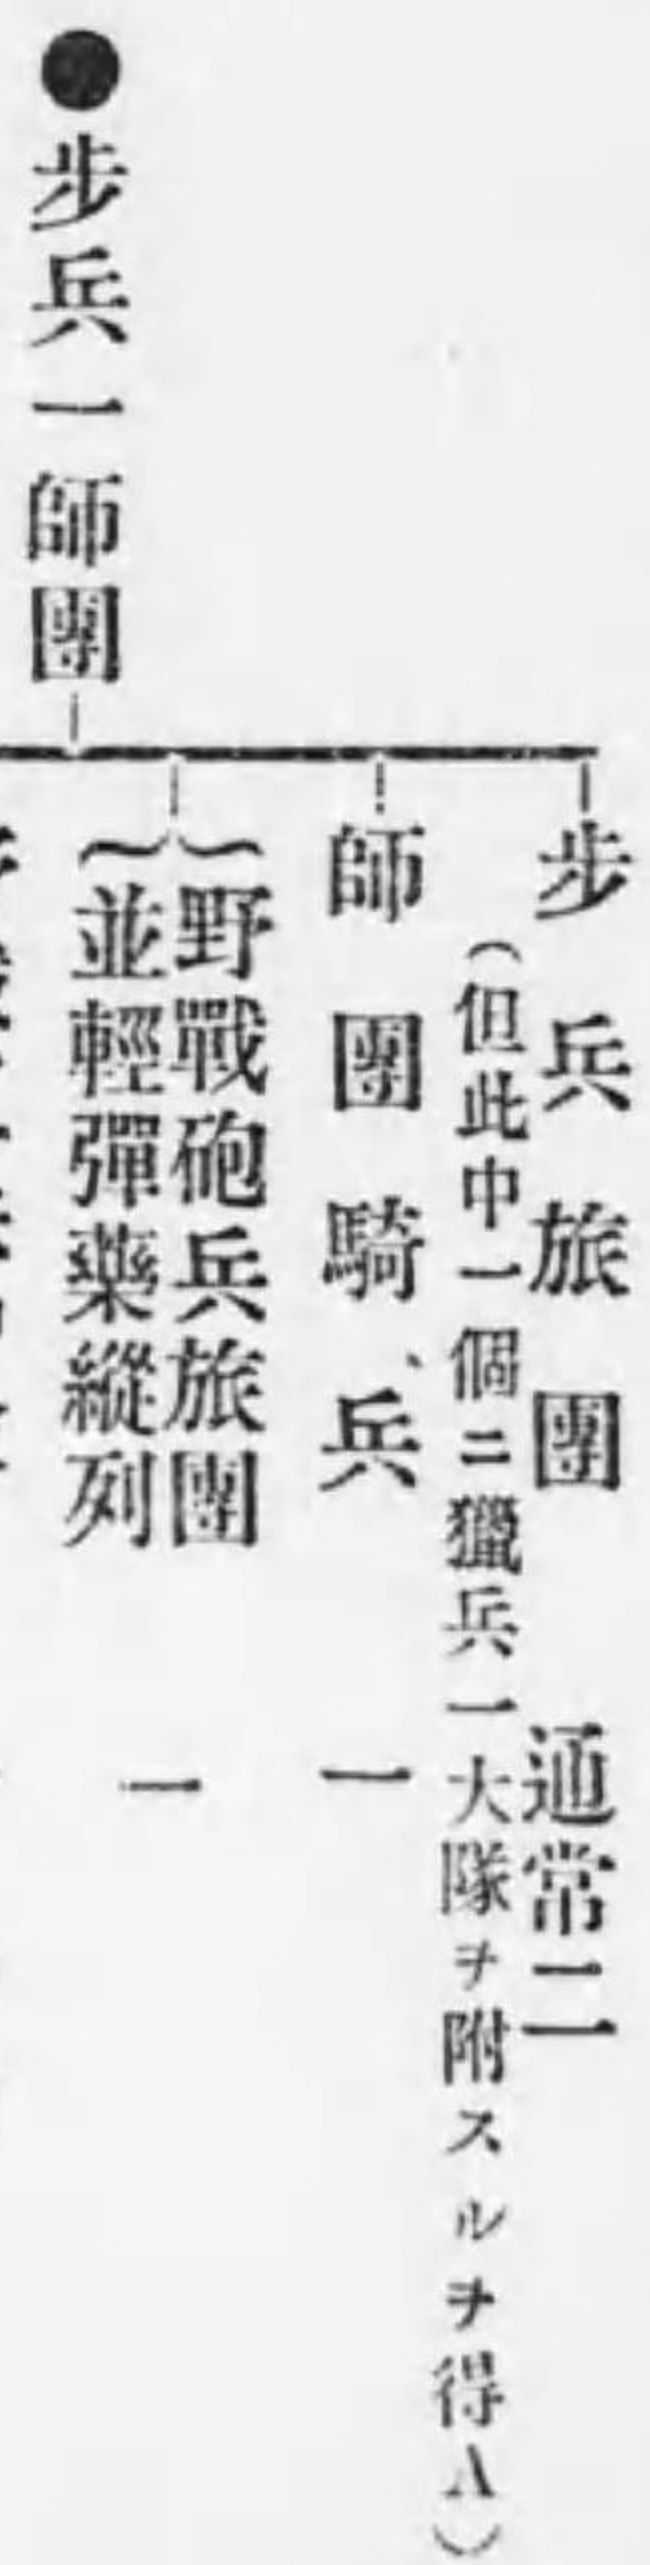 ●步兵一師團
步兵旅團 通常二
(但此中一個ニ獵兵一大隊ヲ附スルヲ得A)
師團騎兵 一
野戰砲兵旅團
並輕彈藥縱列 一